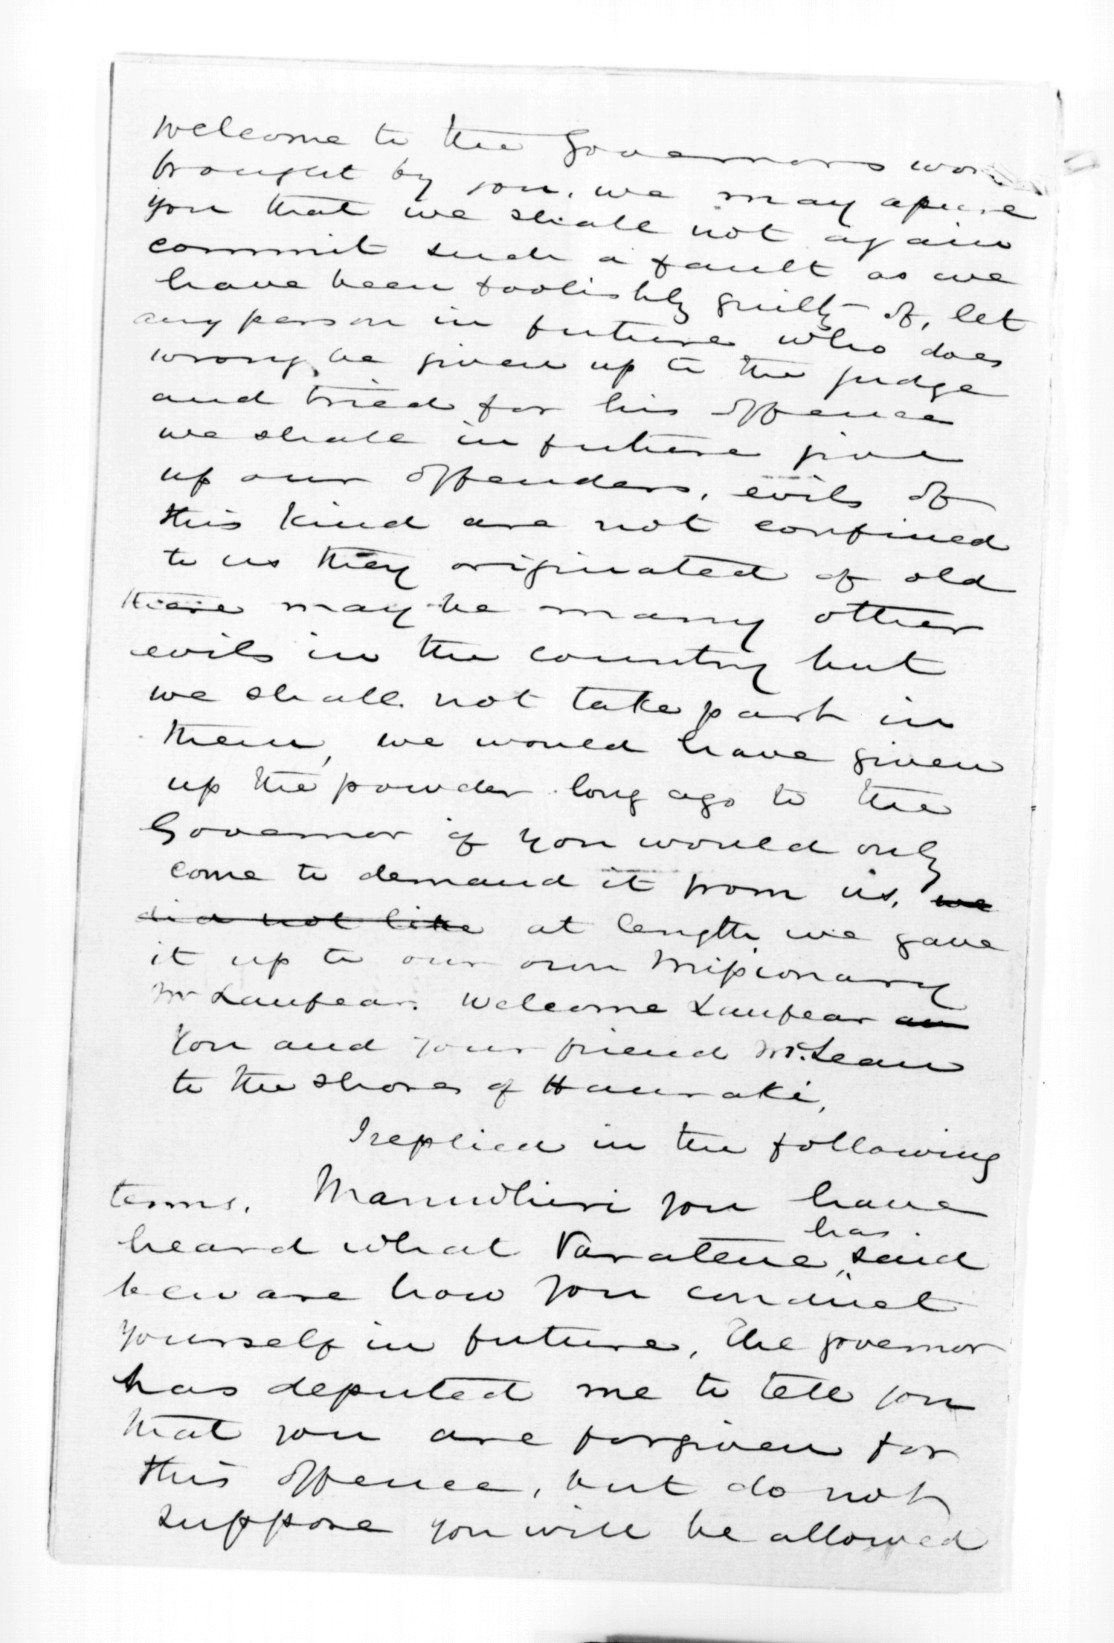 welcome to the Governors wor
brought by you, we may assure
you that we shall not again
commit such a fault as we
have been foolishly guilty of, let
any person in future who does
wrong be given up to the judge
and tried for his offence
we shall in future give
up our offenders, evils of
this kind are not confined
to us they originated of old
there may be many other
evils in the country but
we shall not take part in
them, we would have given
up the powder long ago to the
Governor if you would only
come to demand it from us, we
did not like at length we gave
it up to our own Missionary
Mr Lanfear. Welcome Lanfear
You and your friend Mr. Lean
to the shores of Hauraki,
I replied in the following
terms. Manuwhiri you have
heard what Taratene has said
beware how you conduct
yourself in future, The governor
has deputed me to tell you
that you are forgiven for
this offence, but do not
suppose you will be allowed